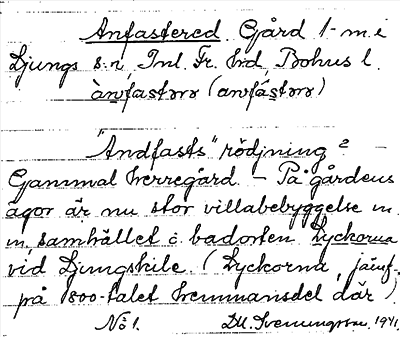 Anfastered. Gård 1 m. i
Ljungs s:n, Inl. Fr. hd, Bohus l.
"Andfasts" rödjning?
Gammal herregård – På gårdens
ägor är nu stor villabebyggelse m.
m, samhället o. badorten Lyckorna
vid Ljungskile. (Lyckorna, jämf.
på 1800-talet hemmansdel där).
No 1. 1941.